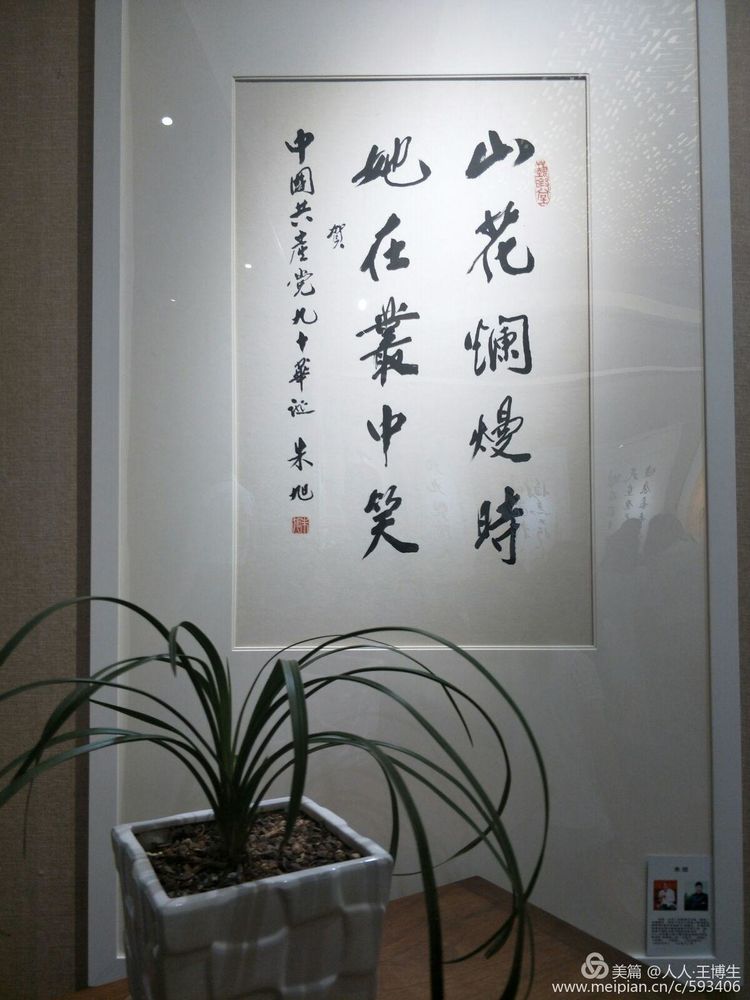 山花爛熳時
她在叢中笑
賀
中國共產党九十華诞 朱旭
朱旭
美篇 @人人·王博生
www.meipian.cn/c/593406